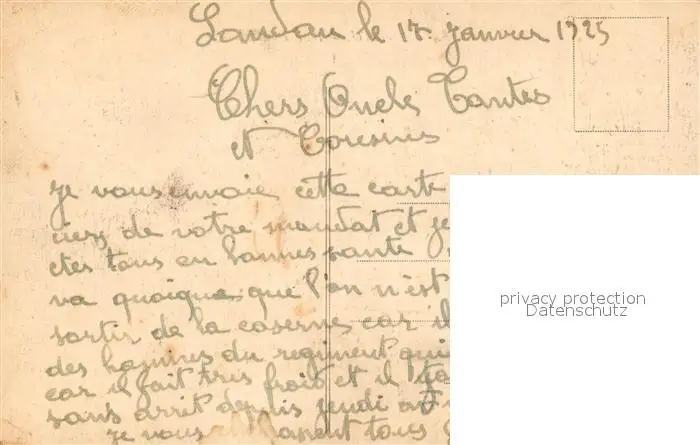 Landau le 17 janvier 1925
Chers Oncle Tantes
et Cousins
je vous envoie cette carte
ciez de votre mandat et je
etes tous en bonnes sante
va quoique que l'on n'est
sortir de la caserne car il
des hommes du regiment qui
car il fait tres froid et il
sans arrit depuis jeudi
je vous tous
privacy protection
Datenschutz